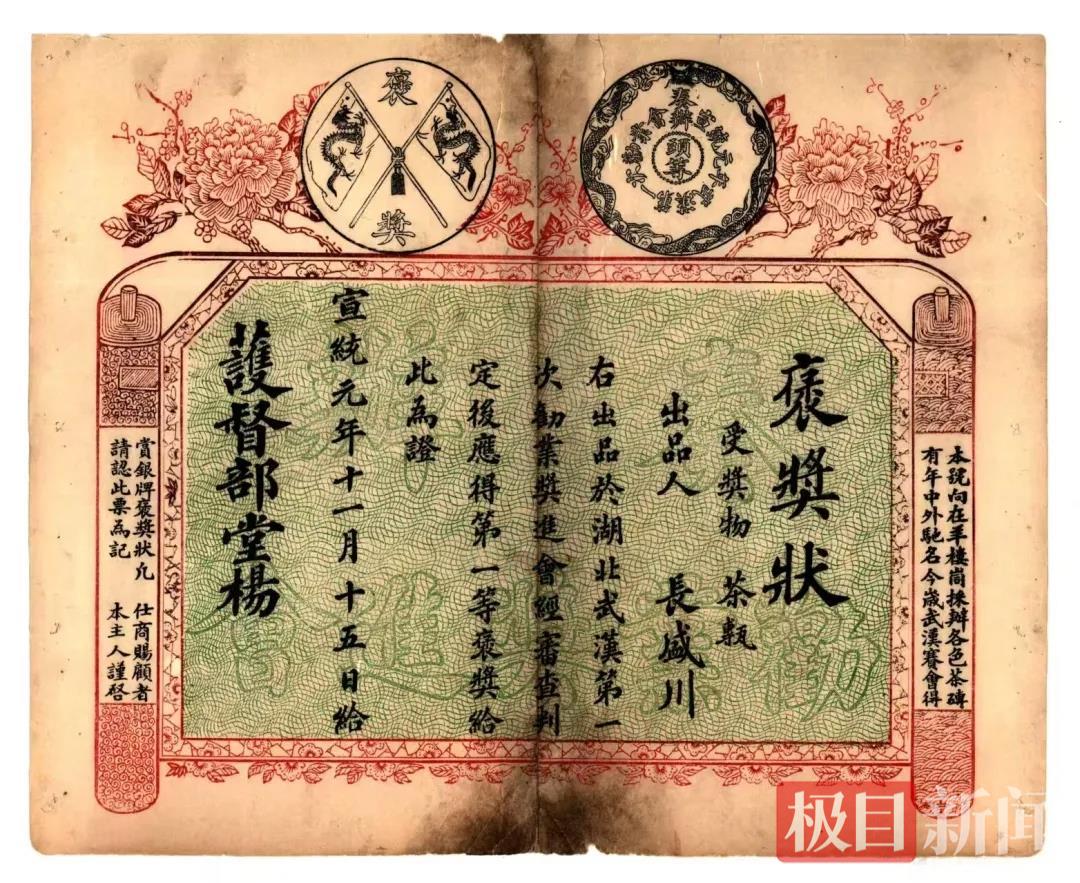 褒獎
頭等
褒獎狀
受獎物 茶甎
出品人 長盛川
右出品於湖北武漢第一
次勸業獎進會經審查判
定後應得第一等褒獎給
此為證
宣統元年十一月十五日給
護督部堂楊
本號向在羊樓峝採辦各色茶磚
有年中外馳名今歲武漢賽會得
賞銀牌褒獎狀凡 仕商賜顧者
請認此票為記 本主人謹啓
极目新闻